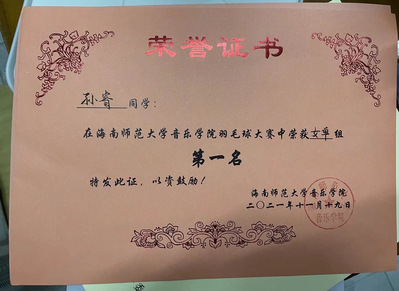 荣誉证书
孙睿 同学：
在海南师范大学音乐学院羽毛球大赛中荣获女单组
第一名
特发此证，以资鼓励！
海南师范大学音乐学院
二〇二一年十一月十九日
音乐学院